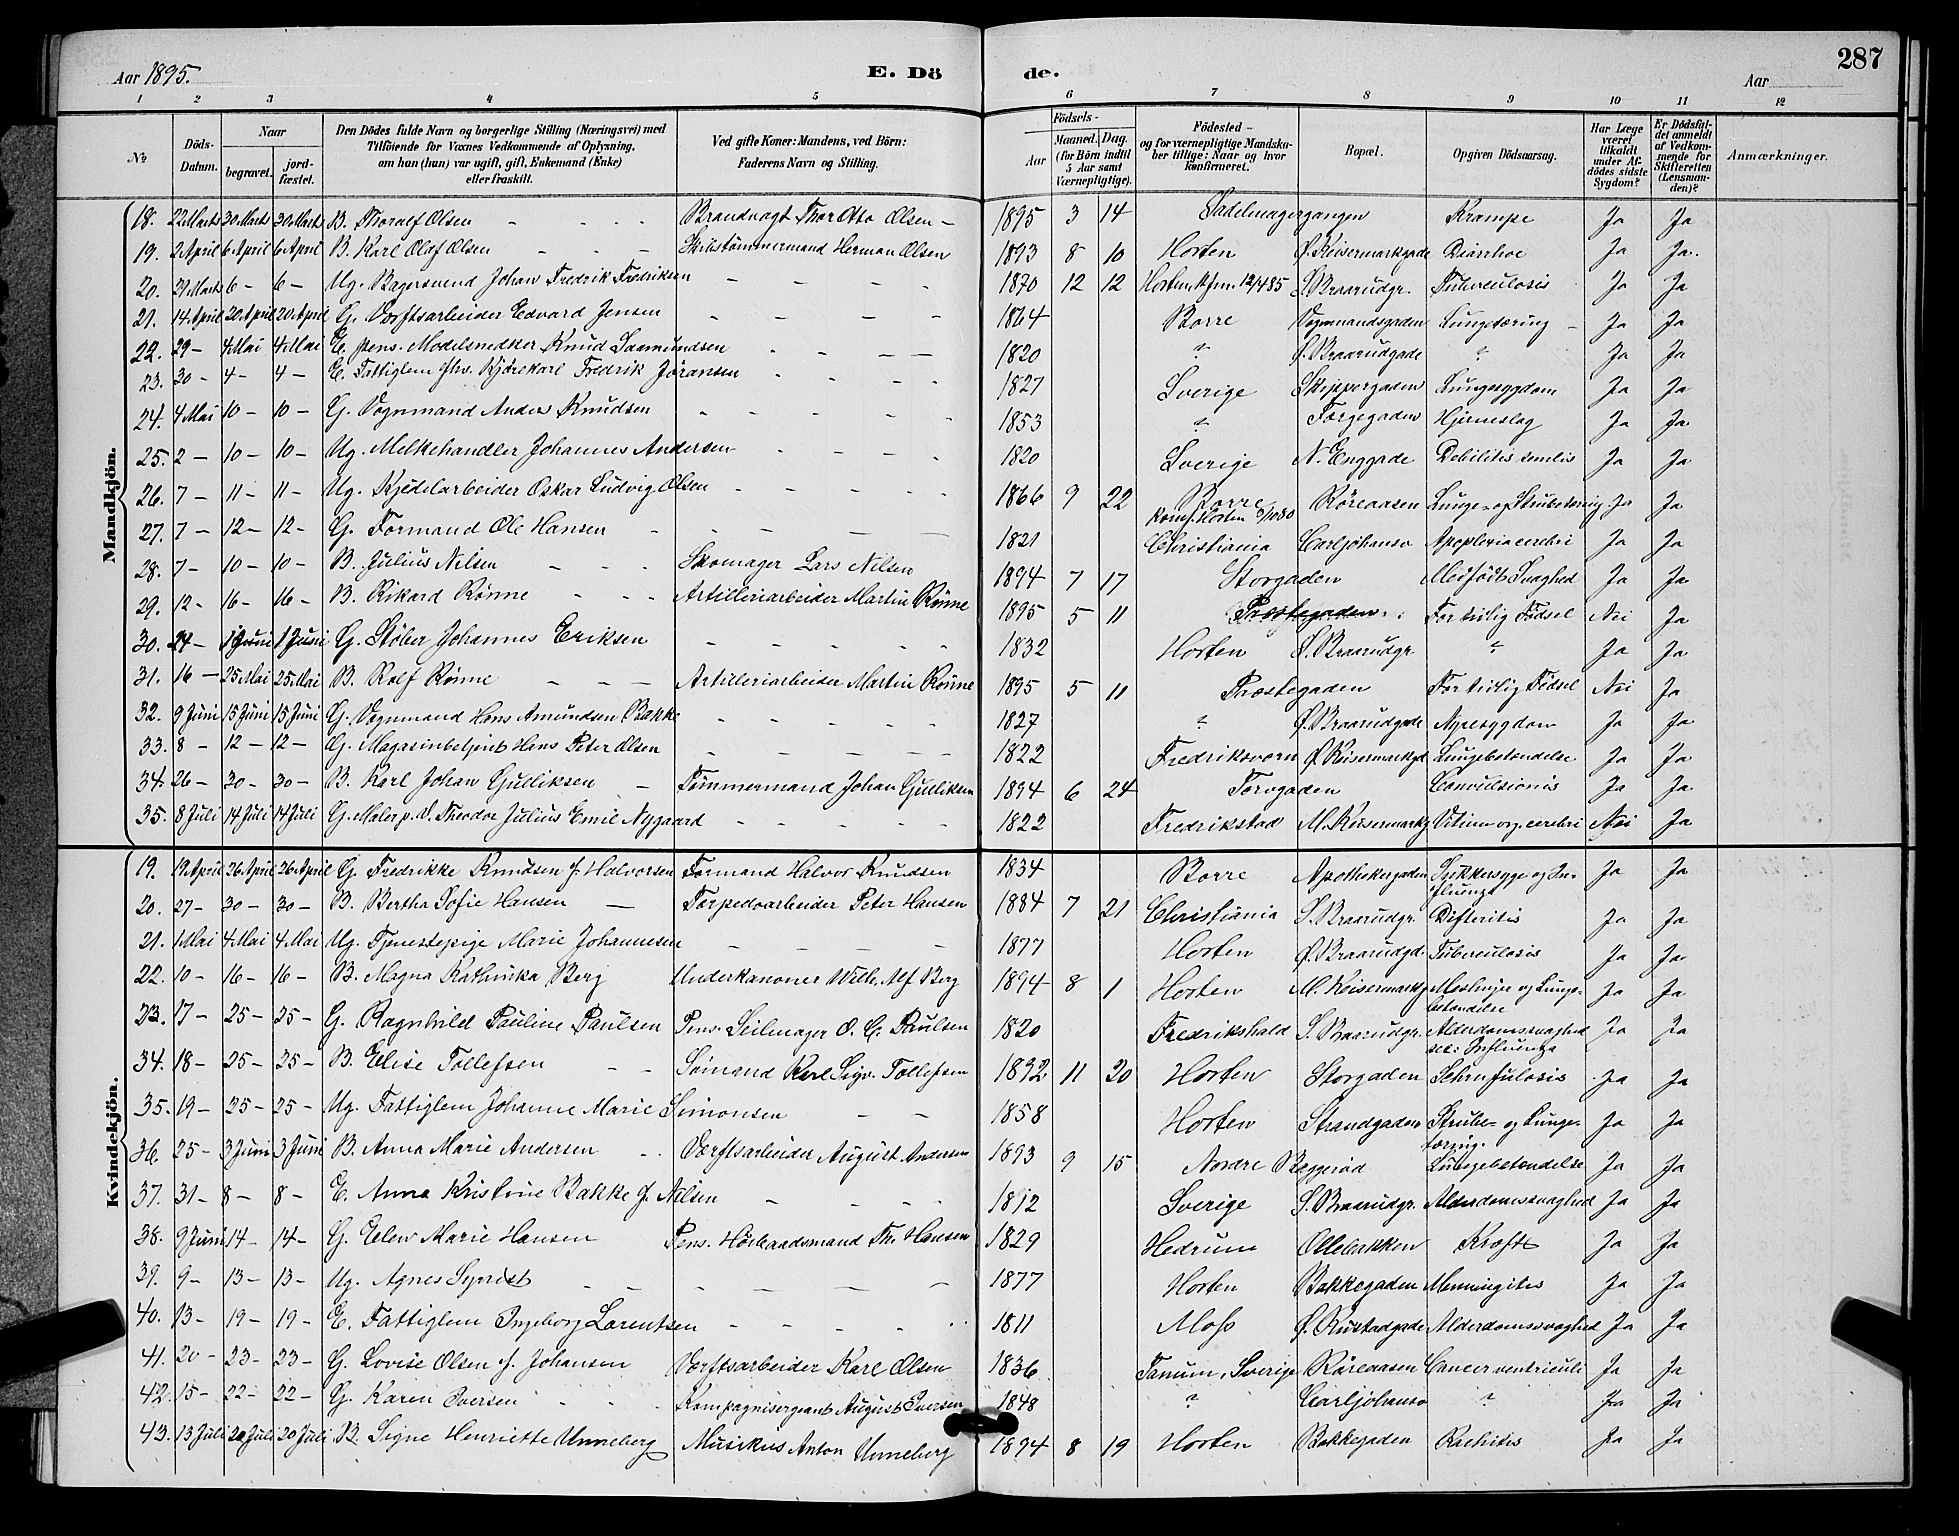 287
Aar 1895.
E. Dö de.
Aar
1 2 3 4 5 6 7 8 9 10 11 12
No
Döds-Datum.
Naar begravet. jord-fæstet.
Den Dödes fulde Navn og borgerlige Stilling (Næringsvei) med Tilföiende for Voxnes Vedkommende af Oplysning, om han (hun) var ugift, gift, Enkemand (Enke) eller fraskilt.
Ved gifte Koner: Mandens, ved Börn: Faderens Navn og Stilling.
Födsels- Aar Maaned. Dag. (for Börn indtil 5 Aar samt Værnepligtige).
Födested - og for værnepligtige Mandskaber tillige: Naar og hvor Konfirmeret.
Bopæl.
Opgiven Dödsaarsag.
Har Læge været tilkaldt under Afdödes sidste Sygdom?
Er Dödsfaldet anmeldt af Vedkommende for Skifteretten (Lensmanden)?
Anmærkninger.
Mandkjön.
18. 22 Marts 30 Marts 30 Marts B. Thoralf Olsen - - - Brandvagt Thor Otto Olsen - 1895 3 14 Sadelmagergangen Krampe Ja Ja
19. 2 April 6 April 6 April B. Karl Olaf Olsen - - - Skibstømmermand Herman Olsen 1893 8 10 Horten Ø. Keisermarkgade Diarrhoe Ja Ja.
20. 29 Marts 6 - 6 - Ug. Bagersvend Johan Fredrik Fredriksen - - - - 1870 12 12 Horten S. Braarudgr. Tuberculosis Ja Ja
21. 14 April 20 April 20 April G. Værftsarbeider Edvard Jensen - - - - 1864 Borre Vognmandsgaden Lungetæring - Ja Ja
22. 29 - 4 Mai 4 Mai E. pens. Modelsnedker Knud Saamundsen - - - - 1820 ? Ø. Braarudgade ? Ja Ja
23. 30 - 4 - 4 - E. Fattiglem fhv. Kjørekarl Fredrik Jöransen - - - - 1827 Sverige Skippergaden Lungesygdom Ja Ja
24. 4 Mai 10 - 10 - G. Vognmand Anders Knudsen - - - - 1853 ? Torgegaden Hjerneslag Ja Ja
25. 2 - 10 - 10 - Ug. Melkehandler Johannes Andersen - - - 1820 Sverige N. Enggade Debilitis senilis Ja Ja
26. 7 - 11 - 11 - Ug. Kjedelarbeider Oskar Ludvig Olsen - - - - 1866 9 22 Borre Konf. Horten Röreaasen Lunge- og Strubetæring Ja Ja
27. 7 - 12 - 12 - G. Formand Ole Hansen - - - - 1821 Christiania Carljohansv Apoplexia cerebri Ja Ja
28. 7 - 10 - 10 - B. Julius Nilsen - - - Skomager Lars Nilsen 1894 7 17 Storgaden Medfödt Svaghed Ja Ja
29. 12 - 16 - 16 - B. Rikard Rönne - - - Artilleriarbeider Martin Rönne 1895 5 11 Præstegaden For tidlig Födsel Nei Ja
30. 24 - 1 Juni 1 Juni G. Støber Johannes Eriksen - - - - 1832 Horten Ø. Braarudgr ? Ja Ja
31. 16 - 25 Mai 25 Mai B. Rolf Rönne - - - Artilleriarbeider Martin Rönne 1895 5 11 Præstegaden For tidlig Födsel Nei Ja
32. 9 Juni 15 Juni 15 Juni G. Vognmand Hans Amundsen Bakke - - - - 1827 ? Ø. Braarudgade Nyresygdom Ja Ja
33. 8 - 12 - 12 - G. Magasinbetjent Hans Peter Olsen - - - - 1822 Fredriksværn Ø. Keisermarkgd Lungebetændelse Ja Ja
34. 26 - 30 - 30 - B. Karl Johan Gulliksen - Tömmermand Johan Gulliksen 1894 6 24 Torvgaden Convulsionis Ja Ja
35. 8 Juli 14 Juli 14 Juli G. Maler p. V. Theodor Julius Emil Nygaard - - - - 1822 Fredrikstad M. Keisermarkg Vitium org. cerebri Nei Ja
Kvindekjön.
19. 19 April 26 April 26 April G. Fredrikke Knudsen f. Halvorsen Formand Halvor Knudsen 1834 Borre Apothekergaden Sukkersyge og Influenza Ja Ja
20. 27 - 30 - 30 - B. Bertha Sofie Hansen - Torpedoarbeider Peter Hansen 1884 7 21 Christiania S. Braarudgr. Difteritis Ja Ja
21. 1 Mai 4 Mai 4 Mai Ug. Tjenestepige Marie Johannesen - - - - 1877 Horten Ø. Braarudgd. Tuberculosis Ja Ja
22. 10 - 16 - 16 - B. Magna Kathinka Berg Underkanoner Wilh. Alf Berg 1894 8 1 Horten M. Keisermarkg Meslinger og Lungebetændelse Ja Ja
23. 17 - 25 - 25 - G. Ragnhild Pauline Paulsen Pens. Seilmager O. C. Paulsen 1820 Fredrikshald S. Braarudgr. Alderdomssvaghed Influenza Ja Ja
34. 18 - 25 - 25 - B. Elise Tollefsen - - Sömand Karl Sigv. Tollefsen 1892 11 20 Horten Storgaden Ja Ja
35. 19 - 25 - 25 - Ug. Fattiglem Johanne Marie Simonsen - - 1858 Horten Strandgaden Strube- og Lungetæring. Ja Ja
36. 25 - 3 Juni 3 Juni B. Anna Marie Andersen - - Værftsarbeider August Andersen 1893 9 15 Nordre Baggerød Lungebetændelse Ja Ja
37. 31 - 8 - 8 - E. Anna Kristine Bakke f. Nilsen - - - 1812 Sverige S. Braarudgr. Alderdomssvaghed Ja Ja
38. 9 Juni 14 - 14 - G. Elen Marie Hansen Pens. Højbaadsmand Th. Hansen 1829 Hedrum Ollebakken Kræft Ja Ja
39. 9 - 13 - 13 - Ug. Agnes - - - - 1877 Horten Bakkegaden Menningitis Ja Ja
40. 13 - 19 - 19 - E. Fattiglem Ingeborg Larentsen - - - - 1811 Moss Ø. Rustadgade Alderdomssvaghed Ja Ja
41. 20 - 23 - 23 - G. Lovise Olsen f. Johansen Værftsarbeider Karl Olsen 1836 Tanum, Sverige Röreaasen Cancer ventriculi Ja Ja
42. 15 - 22 - 22 - G. Karen Iversen - - - Kompagnisergeant August Iversen 1848 ? Carljohansv ? Ja Ja
43. 13 Juli 20 Juli 20 Juli B. Signe Henriette Unneberg Musikus Anton Unneberg 1894 8 19 Horten Bakkegaden Rachitis Ja Ja